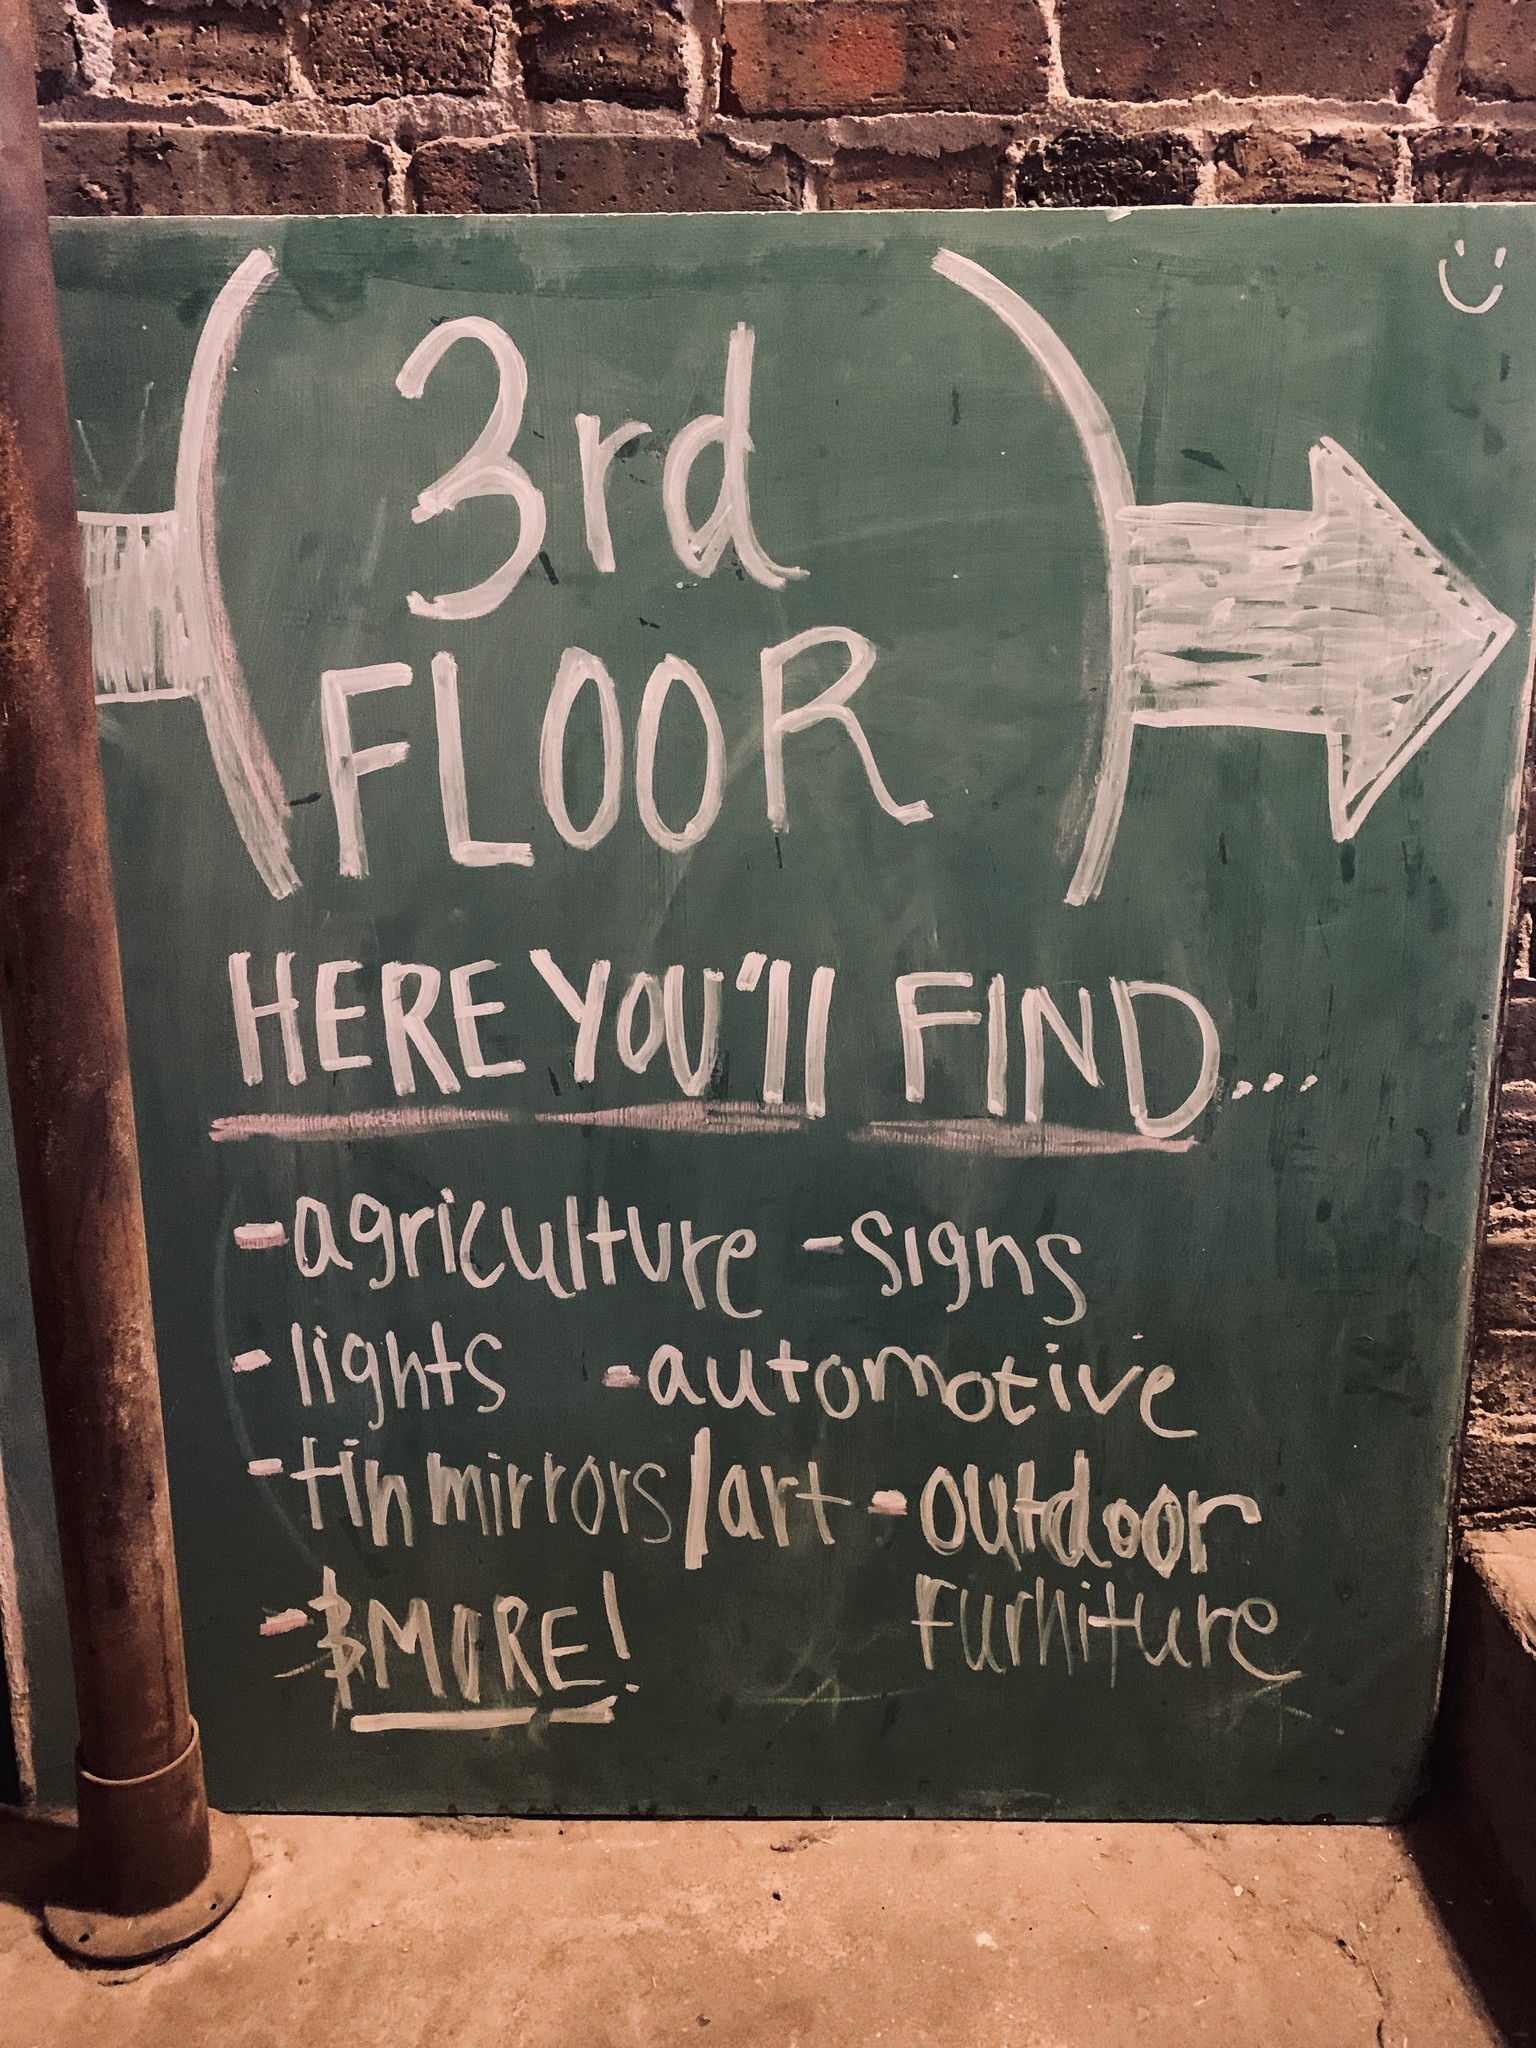 3rd
FLOOR
HERE YOU'll FIND...
-agriculture -signs
-lights -automotive
-tin mirrors/art -outdoor
furniture
-& MORE!